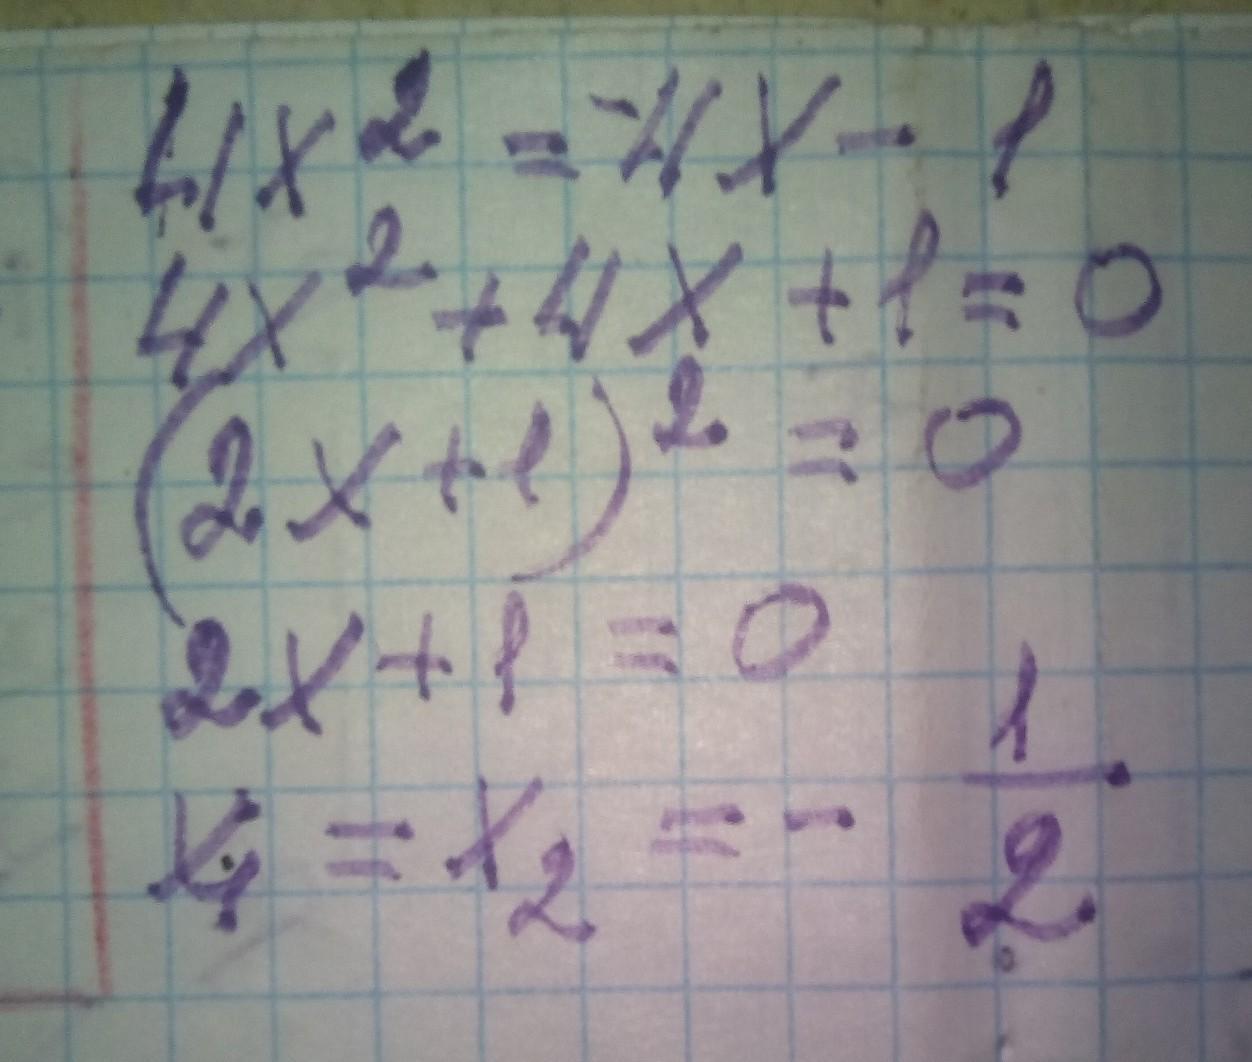 4x² = -4x - 1
4x² + 4x + 1 = 0
(2x + 1)² = 0
2x + 1 = 0
x₁ = x₂ = - 1/2